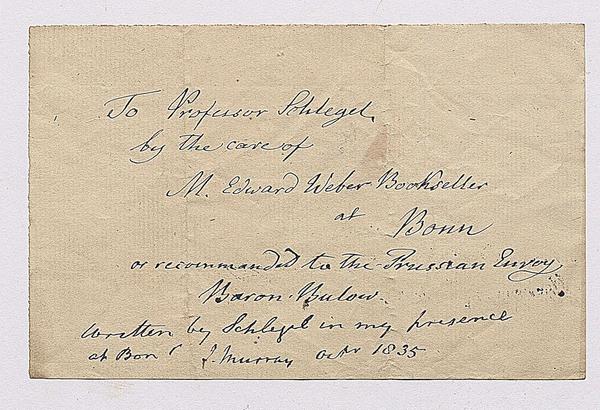 To Professor Schlegel,
by the care of
M. Edward Weber Bookseller
at Bonn
or recommanded to the Prussian Envoy
Baron Bulow.
Written by Schlegel in my presence
at Bon J. Murray Octr 1835